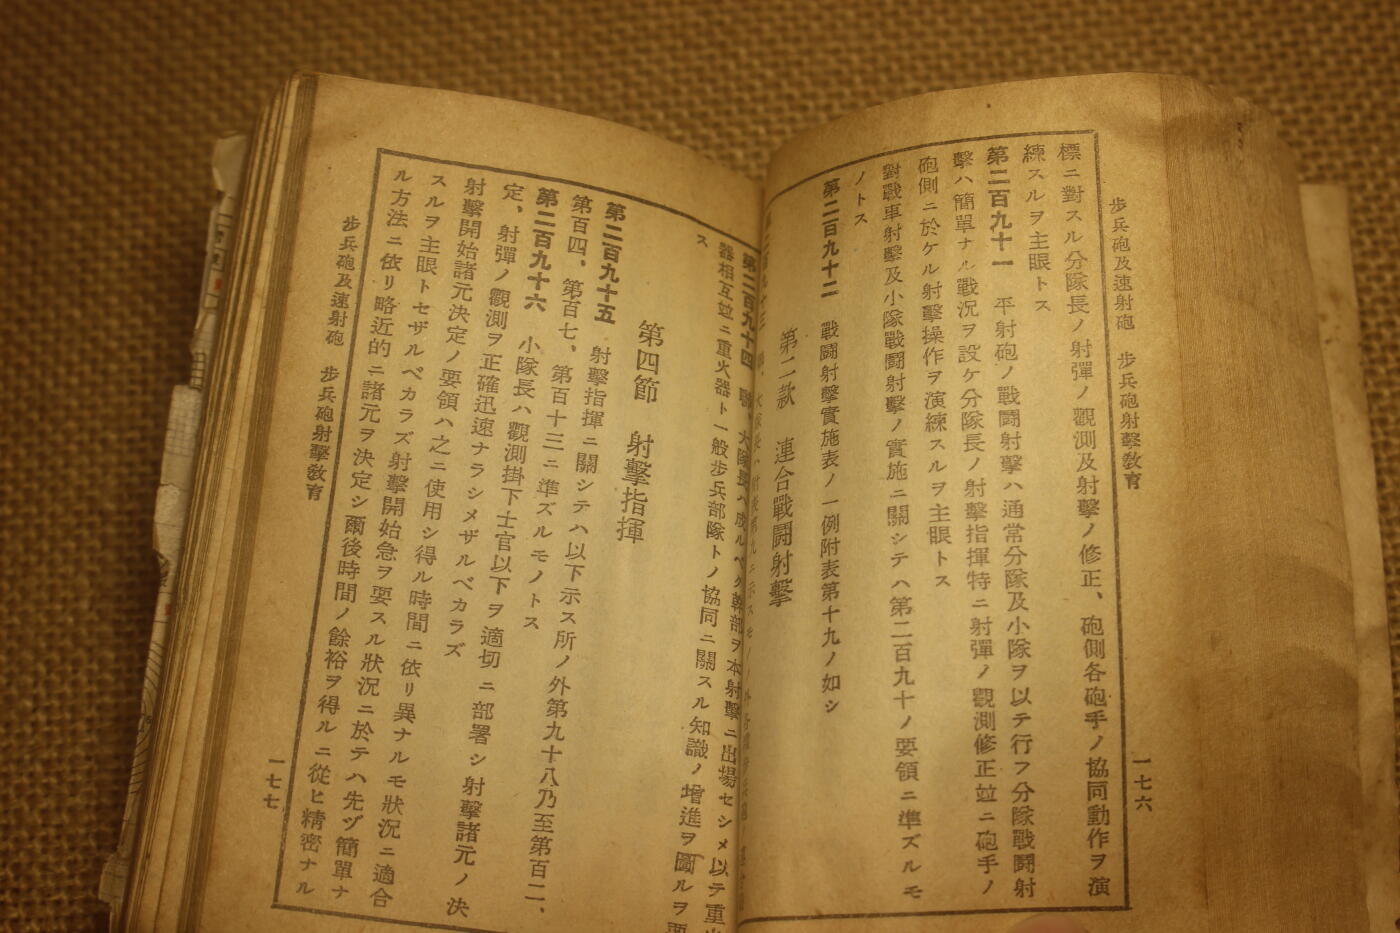 步兵砲及速射砲　步兵砲射擊敎育
一七六
標ニ對スル分隊長ノ射彈ノ觀測及射擊ノ修正、砲側各砲手ノ協同動作ヲ演
練スルヲ主眼トス
第二百九十一　平射砲ノ戰鬪射擊ハ通常分隊及小隊ヲ以テ行フ分隊戰鬪射
擊ハ簡單ナル戰況ヲ設ケ分隊長ノ射擊指揮特ニ射彈ノ觀測修正竝ニ砲手ノ
砲側ニ於ケル射擊操作ヲ演練スルヲ主眼トス
對戰車射擊及小隊戰鬪射擊ノ實施ニ關シテハ第二百九十ノ要領ニ準ズルモ
ノトス
第二百九十二　戰鬪射擊實施表ノ一例附表第十九ノ如シ
第二款　連合戰鬪射擊
第二百九十四　聯、大隊長ハ成ルベク幹部ヲ本射擊ニ出場セシメ以テ重火
器相互竝ニ重火器ト一般步兵部隊トノ協同ニ關スル知識ノ增進ヲ圖ルヲ要
ス
第四節　射擊指揮
第二百九十五　射擊指揮ニ關シテハ以下示ス所ノ外第九十八乃至第百二、
第百四、第百七、第百十三ニ準ズルモノトス
第二百九十六　小隊長ハ觀測掛下士官以下ヲ適切ニ部署シ射擊諸元ノ決
定、射彈ノ觀測ヲ正確迅速ナラシメザルベカラズ
射擊開始諸元決定ノ要領ハ之ニ使用シ得ル時間ニ依リ異ナルモ狀況ニ適合
スルヲ主眼トセザルベカラズ射擊開始急ヲ要スル狀況ニ於テハ先ヅ簡單ナ
ル方法ニ依リ略近的ニ諸元ヲ決定シ爾後時間ノ餘裕ヲ得ルニ從ヒ精密ナル
步兵砲及速射砲　步兵砲射擊敎育
一七七